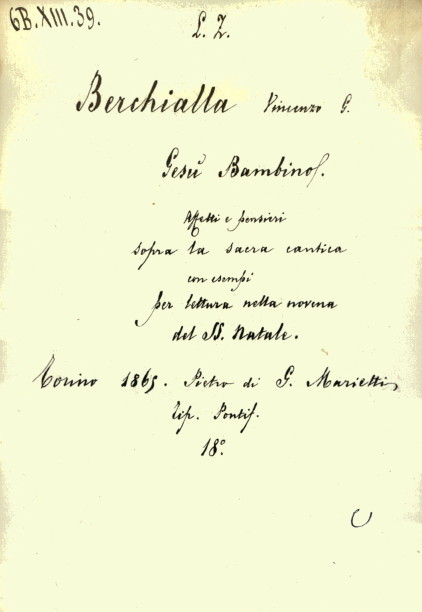 6B.XIII.39.
L. Z.
Berchialla Vincenzo G.
Gesù Bambino.
Affetti e pensieri
sopra la sacra cantica
con esempi
per lettura nella novena
del SS. Natale.
Torino 1865. Pietro di G. Marietti
Tip. Pontif.
18°.